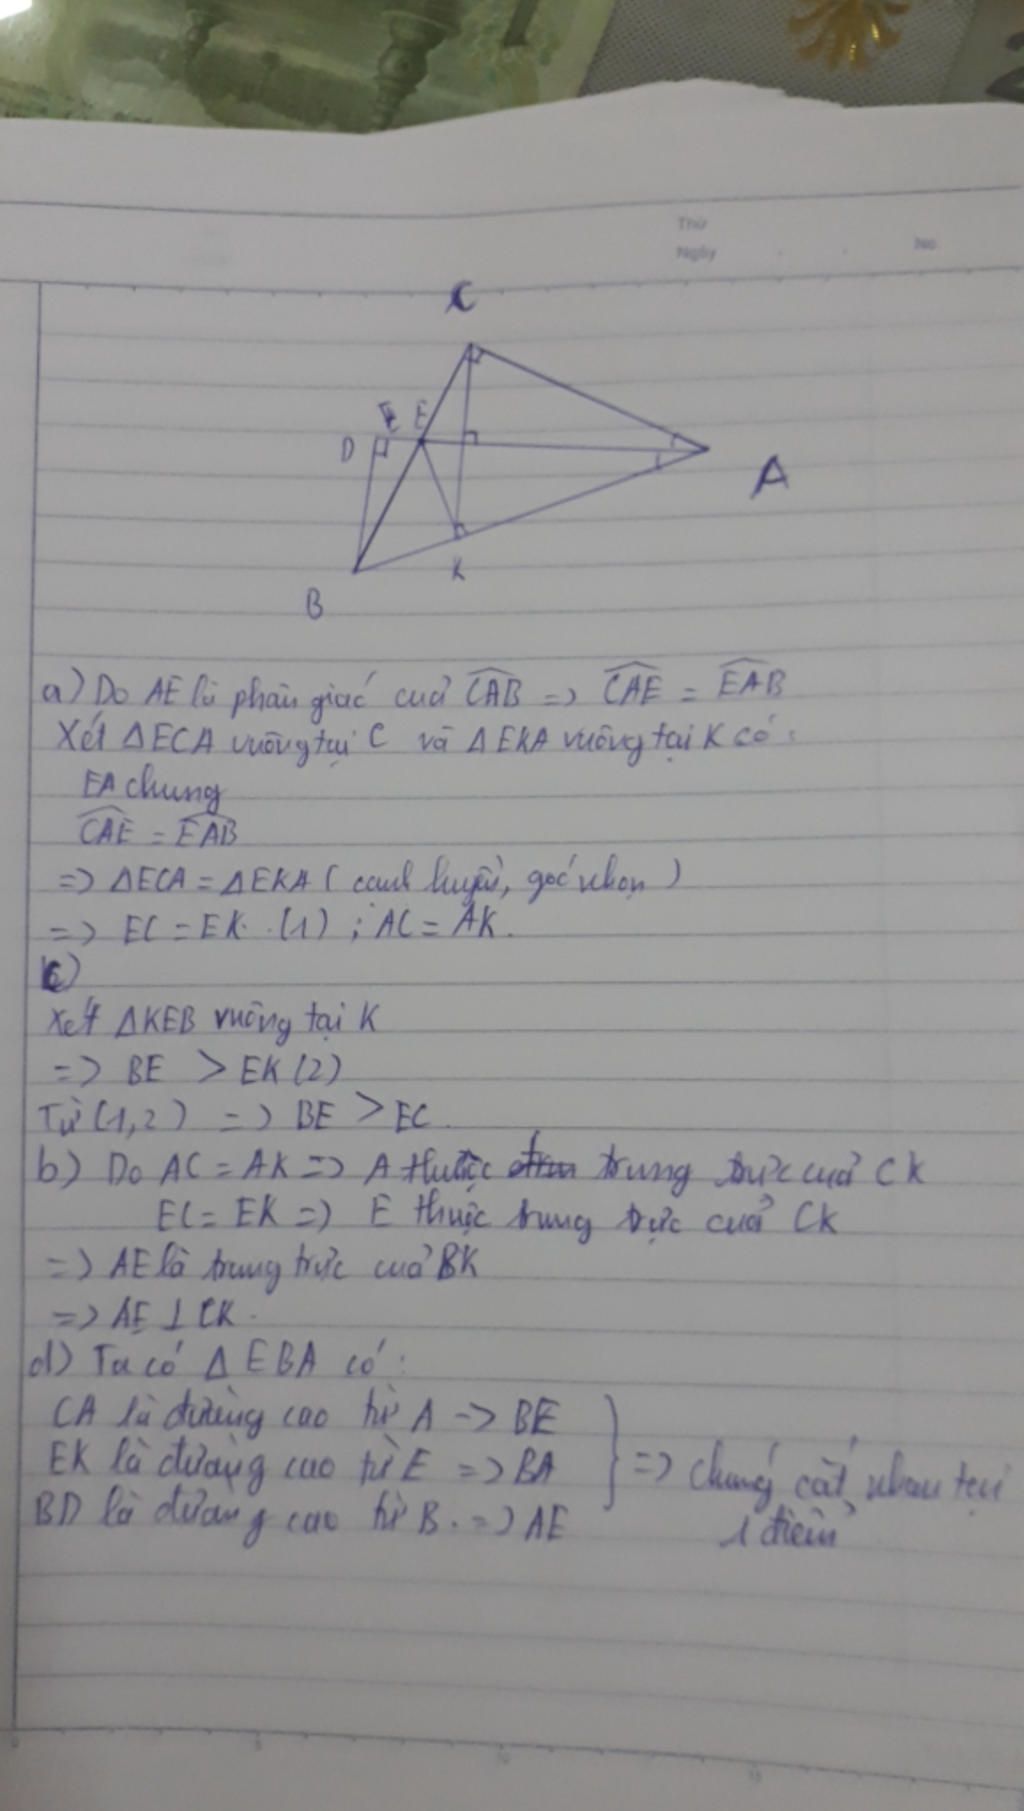 Thứ
Ngày
No.
C
E
D
A
K
B
a) Do AE là phân giác của CAB => CAE = EAB
Xét ΔECA vuông tại C và ΔEKA vuông tại K có:
EA chung
CAE = EAB
=> ΔECA = ΔEKA ( cạnh huyền, góc nhọn )
=> EC = EK. (1) ; AC = AK.
c)
Xét ΔKEB vuông tại K
=> BE > EK (2)
Từ (1,2) => BE > EC.
b) Do AC = AK => A thuộc trung trực của CK
EC = EK => E thuộc trung trực của CK
=> AE là trung trực của BK
=> AE ⊥ CK.
d) Ta có Δ EBA có:
CA là đường cao từ A -> BE
EK là đường cao từ E => BA
BD là đường cao từ B. => AE
=> chúng cắt nhau tại
1 điểm
0
5
10
15